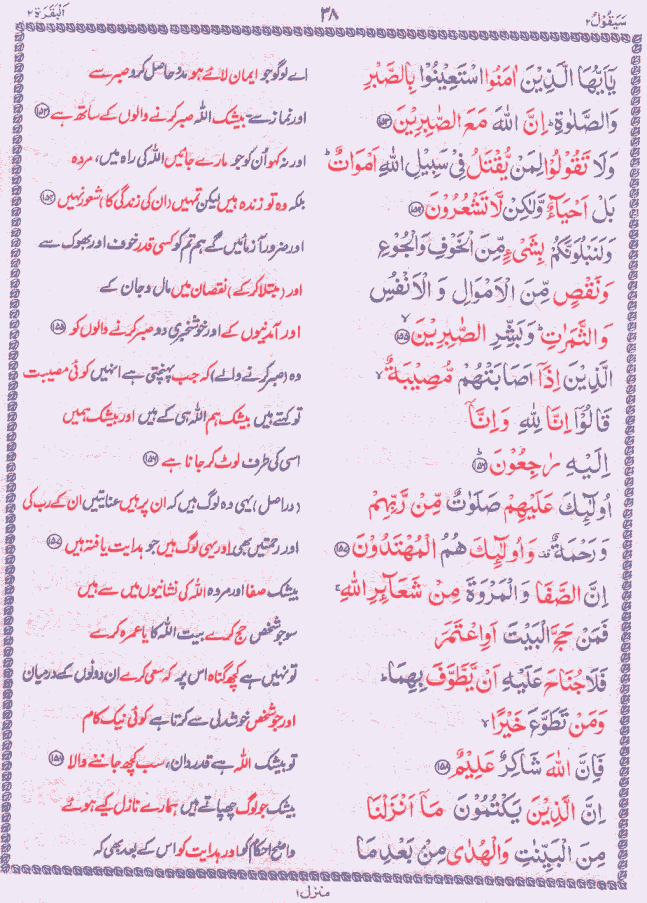 سَيَقُوْلُ ٢
٣٨
اَلْبَقَرَة ٢
يٰۤاَيُّهَا الَّذِيْنَ اٰمَنُوا اسْتَعِيْنُوْا بِالصَّبْرِ
اے لوگو جو ایمان لائے ہو مدد حاصل کرو صبر سے
وَالصَّلٰوةِ ؕ اِنَّ اللّٰهَ مَعَ الصّٰبِرِيْنَ ﴿۱۵۳﴾
اور نماز سے۔ بیشک اللہ صبر کرنے والوں کے ساتھ ہے ﴿۱۵۳﴾
وَلَا تَقُوْلُوْا لِمَنْ يُّقْتَلُ فِيْ سَبِيْلِ اللّٰهِ اَمْوَاتٌ ؕ
اور نہ کہو اُن کو جو مارے جائیں اللہ کی راہ میں، مردہ
بَلْ اَحْيَآءٌ وَّلٰكِنْ لَّا تَشْعُرُوْنَ ﴿۱۵۴﴾
بلکہ وہ تو زندہ ہیں لیکن تمہیں (ان کی زندگی کا) شعور نہیں ﴿۱۵۴﴾
وَلَنَبْلُوَنَّكُمْ بِشَيْءٍ مِّنَ الْخَوْفِ وَالْجُوْعِ
اور ضرور آزمائیں گے ہم تم کو کسی قدر خوف اور بھوک سے
وَنَقْصٍ مِّنَ الْاَمْوَالِ وَ الْاَنْفُسِ
اور (مبتلا کر کے) نقصان میں مال و جان کے
وَالثَّمَرٰتِ ؕ وَبَشِّرِ الصّٰبِرِيْنَ ﴿۱۵۵﴾
اور آمدنیوں کے اور خوشخبری دو صبر کرنے والوں کو ﴿۱۵۵﴾
الَّذِيْنَ اِذَاۤ اَصَابَتْهُمْ مُّصِيْبَةٌ ۙ
وہ (صبر کرنے والے) کہ جب پہنچتی ہے انہیں کوئی مصیبت
قَالُوْۤا اِنَّا لِلّٰهِ وَاِنَّاۤ
تو کہتے ہیں بیشک ہم اللہ ہی کے ہیں اور بیشک ہمیں
اِلَيْهِ رٰجِعُوْنَ ﴿۱۵۶﴾
اسی کی طرف لوٹ کر جانا ہے ﴿۱۵۶﴾
اُولٰٓئِكَ عَلَيْهِمْ صَلَوٰتٌ مِّنْ رَّبِّهِمْ
(دراصل) یہی وہ لوگ ہیں کہ ان پر ہیں عنایتیں ان کے رب کی
وَرَحْمَةٌ ۟ وَاُولٰٓئِكَ هُمُ الْمُهْتَدُوْنَ ﴿۱۵۷﴾
اور رحمتیں بھی، اور یہی لوگ ہیں جو ہدایت یافتہ ہیں ﴿۱۵۷﴾
اِنَّ الصَّفَا وَالْمَرْوَةَ مِنْ شَعَآئِرِ اللّٰهِ ۚ
بیشک صفا اور مروہ اللہ کی نشانیوں میں سے ہیں
فَمَنْ حَجَّ الْبَيْتَ اَوِ اعْتَمَرَ
سو جو شخص حج کرے بیت اللہ کا یا عمرہ کرے
فَلَا جُنَاحَ عَلَيْهِ اَنْ يَّطَّوَّفَ بِهِمَا ؕ
تو نہیں ہے کچھ گناہ اس پر کہ سعی کرے ان دونوں کے درمیان
وَمَنْ تَطَوَّعَ خَيْرًا ۙ
اور جو شخص خوشدلی سے کرتا ہے کوئی نیک کام
فَاِنَّ اللّٰهَ شَاكِرٌ عَلِيْمٌ ﴿۱۵۸﴾
تو بیشک اللہ ہے قدردان، سب کچھ جاننے والا ﴿۱۵۸﴾
اِنَّ الَّذِيْنَ يَكْتُمُوْنَ مَاۤ اَنْزَلْنَا
بیشک جو لوگ چھپاتے ہیں ہمارے نازل کیے ہوئے
مِنَ الْبَيِّنٰتِ وَالْهُدٰى مِنْ بَعْدِ مَا
واضح احکام کو اور ہدایت کو اس کے بعد بھی کہ
منزل ۱